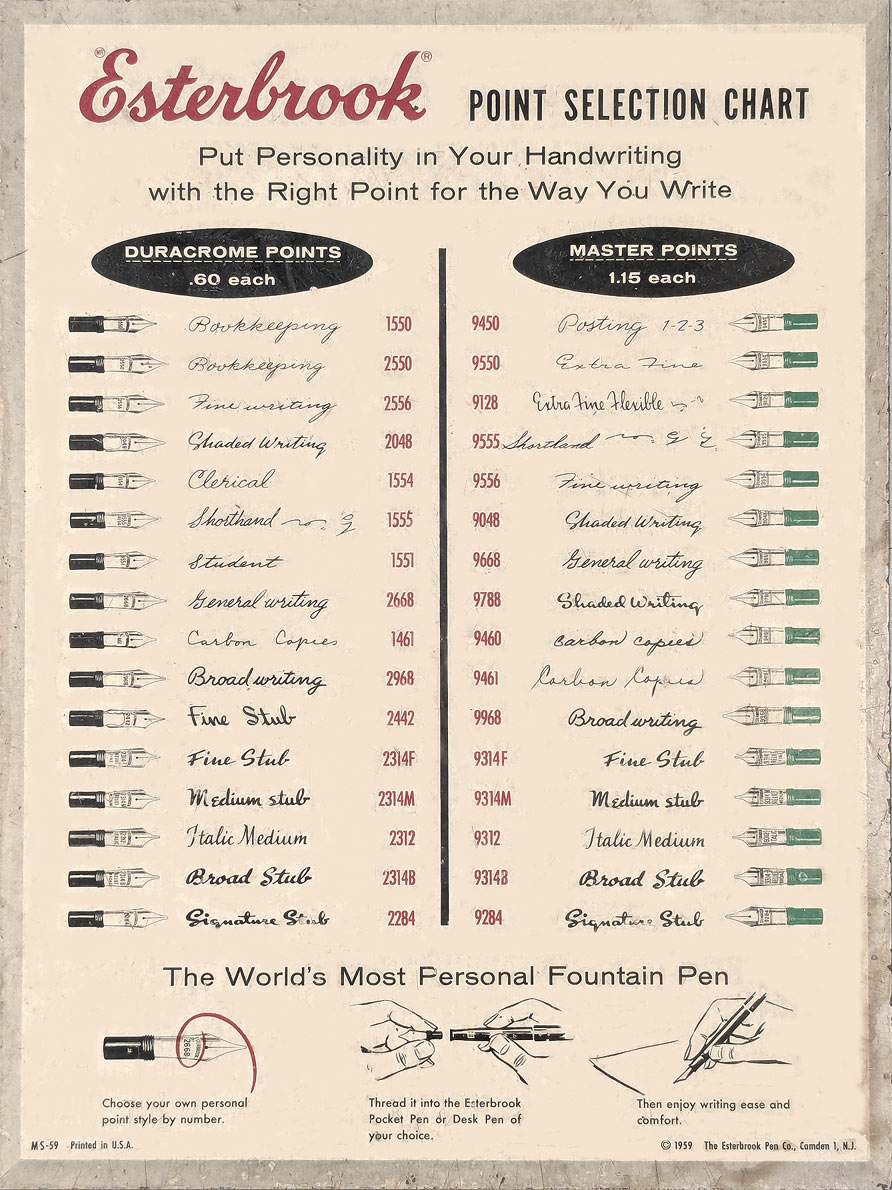 Esterbrook®
POINT SELECTION CHART
Put Personality in Your Handwriting
with the Right Point for the Way You Write
DURACROME POINTS
.60 each
Bookkeeping 1550
Bookkeeping 2550
Fine writing 2556
Shaded Writing 2048
Clerical 1554
Shorthand 1555
Student 1551
General writing 2668
Carbon Copies 1461
Broad writing 2968
Fine Stub 2442
Fine Stub 2314F
Medium stub 2314M
Italic Medium 2312
Broad Stub 2314B
Signature Stub 2284
MASTER POINTS
1.15 each
9450 Posting 1-2-3
9550 Extra Fine
9128 Extra Fine Flexible
9555 Shortland
9556 Fine writing
9048 Shaded Writing
9668 General writing
9788 Shaded Writing
9460 Carbon copies
9461 Carbon Copies
9968 Broad writing
9314F Fine Stub
9314M Medium stub
9312 Italic Medium
9314B Broad Stub
9284 Signature Stub
The World's Most Personal Fountain Pen
2668
Choose your own personal
point style by number.
Thread it into the Esterbrook
Pocket Pen or Desk Pen of
your choice.
Then enjoy writing ease and
comfort.
MS-59 Printed in U.S.A.
© 1959 The Esterbrook Pen Co., Camden 1, N.J.